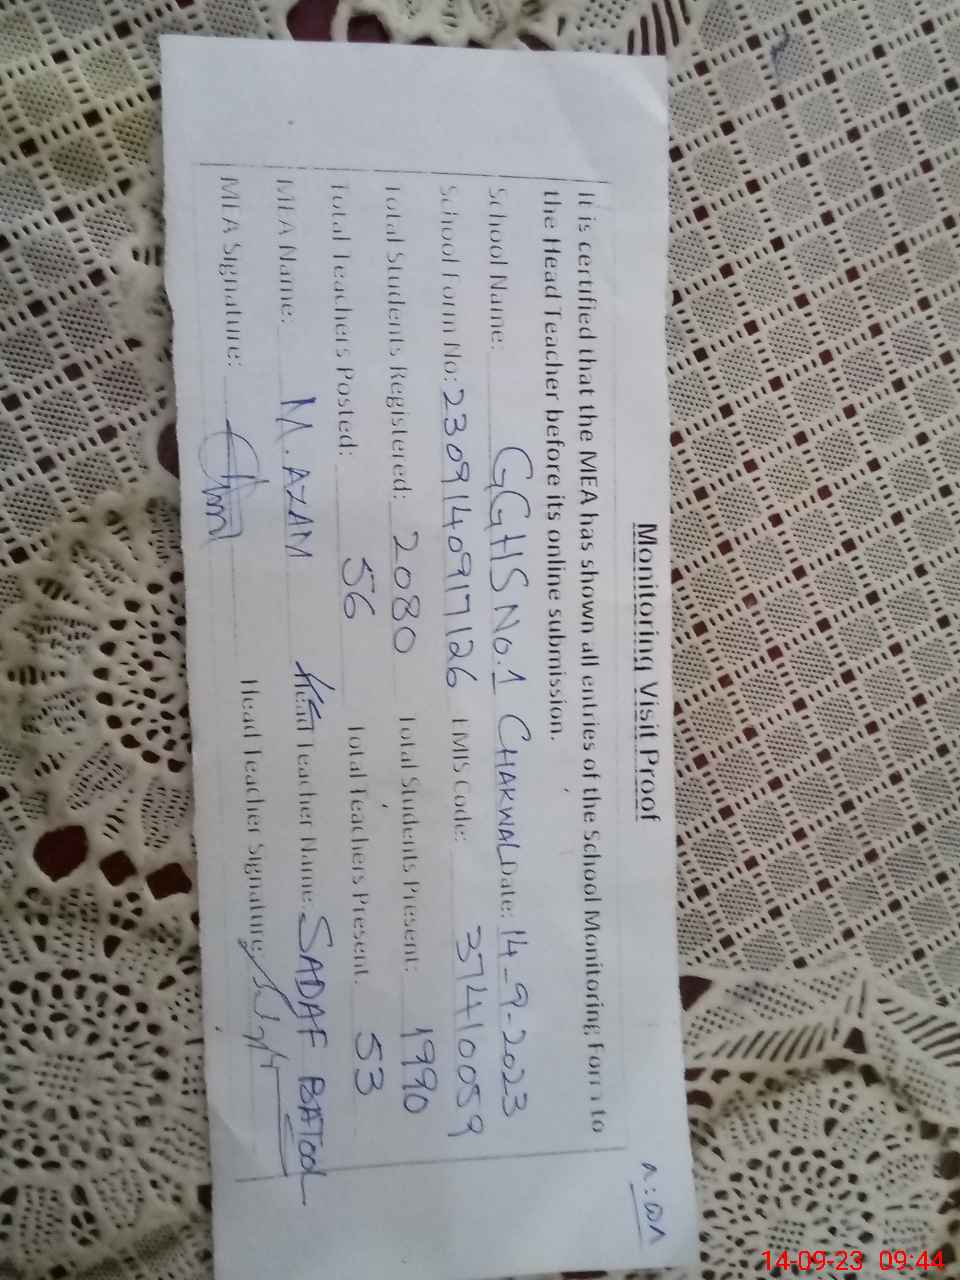 Monitoring Visit Proof
It is certified that the MEA has shown all entries of the School Monitoring Form to
the Head Teacher before its online submission.
School Name: GGHS No.1 CHAKWAL Date: 14-9-2023
School Form No: 2309140917126 EMIS Code: 37410059
Total Students Registered: 2080 Total Students Present: 1990
Total Teachers Posted: 56 Total Teachers Present 53
MEA Name: M. AZAM Head Teacher Name: SADAF BATOOL
MEA Signature: Head Teacher Signature:
14-09-23 09:44